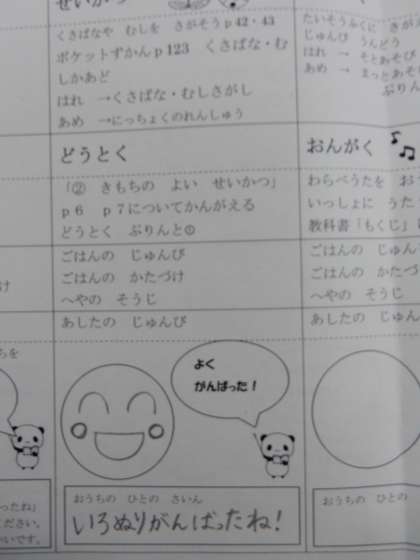 せいかつ
くさばなや　むしを　さがそうｐ42・43
ポケットずかんｐ123　くさばな・む
しかあど
はれ　→くさばな・むしさがし
あめ　→にっちょくのれんしゅう
どうとく
「②　きもちの　よい　せいかつ」
ｐ６　ｐ７についてかんがえる
どうとく　ぷりんと①
ごはんの　じゅんび
ごはんの　かたづけ
へやの　そうじ
あしたの　じゅんび
よく
がんばった！
おうちの　ひとの　さいん
いろぬりがんばったね!
たいそうふくに　きが
じゅんび　うんどう
はれ　→　そとあそび
あめ　→　まっとあそ
ぷりん
おんがく
わらべうたを　お
いっしょに　うた
教科書「もくじ」
ごはんの　じゅん
ごはんの　かたづ
へやの　そうじ
あしたの　じゅん
おうちの　ひとの
け
ちを
ったね」
ださい。
いです。